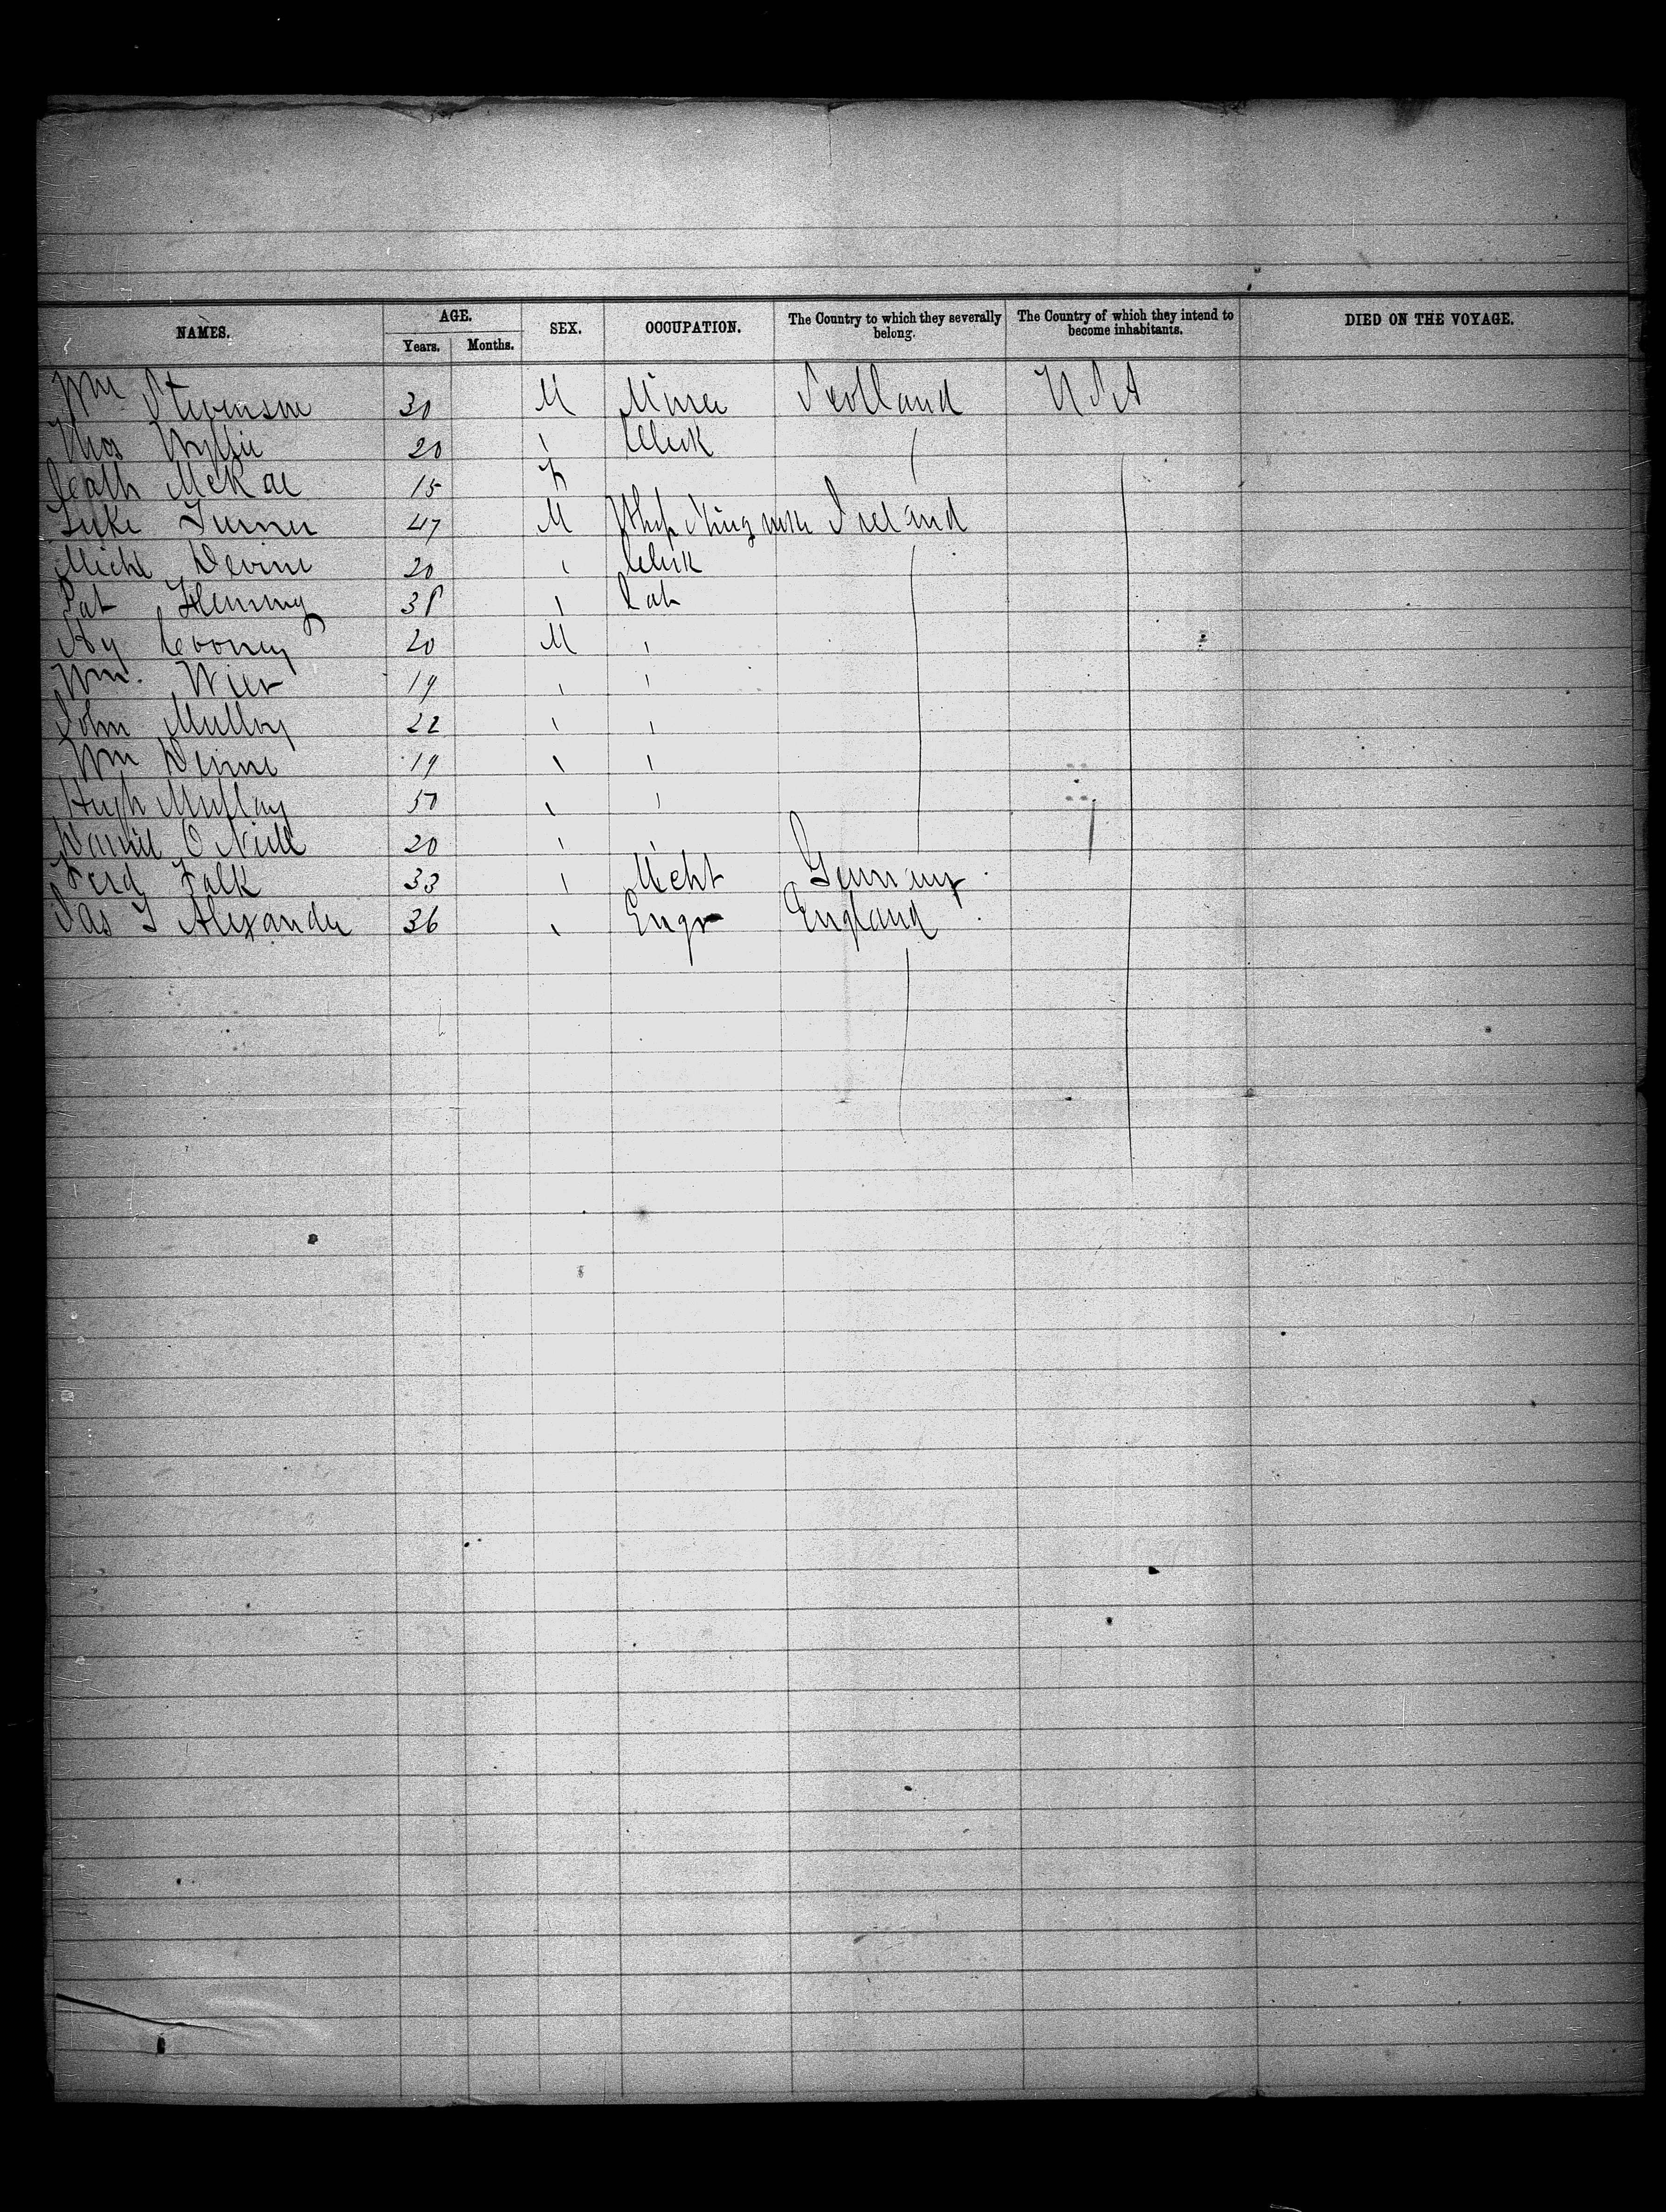 NAMES. AGE. SEX. OCCUPATION. The Country to which they severally belong. The Country of which they intend to become inhabitants. DIED ON THE VOYAGE.
Years. Months.
Wm Stevenson 30 M Miner Scotland U S A
Thos Wyllie 20 Clerk
McRae 15 F
Luke Turner 47 M Ireland
Michl Devine 20 Clerk
Pat Fleming 38 Lab
Hy Cooney 20 M
Wm. Wier 19
John Mulloy 22
Wm Devine 19
Hugh 50
Daniel O Neill 20
Ferd Falk 33 Mcht Germany
Jas T Alexander 36 Engr England